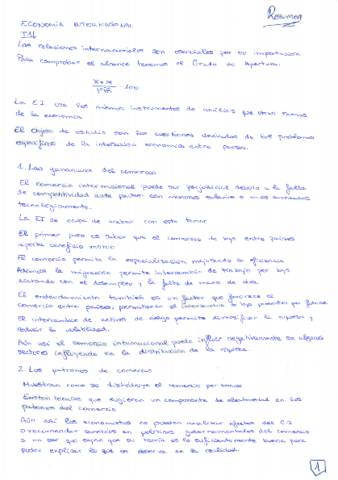 Resumen
ECONOMÍA INTERNACIONAL
T.1
Las relaciones internacionales son esenciales por su importancia
Para comprobar el alcance tenemos el Grado de Apertura:
X+M
PIB · 100
La EI usa los mismos instrumentos de análisis que otras ramas
de la economía
El objeto de estudio son las cuestiones derivadas de los problemas
específicos de la interacción económica entre países.
1. Las ganancias del comercio
El comercio internacional puede ser perjudicial debido a la falta
de competitividad ante países con menores salarios o más avanzados
tecnológicamente.
La EI se ocupa de acabar con este temor
El primer paso es saber que el comercio de bys entre países
aporta beneficio mutuo
El comercio permite la especialización, mejorando la eficiencia
Además la migración permite intercambio de trabajo por bys
acabando con el desempleo y la falta de mano de obra
El endeudamiento también es un factor que favorece el
comercio entre países, permitiendo el intercambio de bys presentes por futuros.
El intercambio de activos de riesgo permite diversificar la riqueza y
reducir la volatilidad.
Aún así el comercio internacional puede influir negativamente en algunos
sectores influyendo en la distribución de la riqueza.
2. Los patrones de comercio
Muestran como se distribuye el comercio por zonas
Existen teorías que sugieren un componente de aleatoriedad en los
patrones del comercio
Aún así los economistas no pueden analizar efectos del C.I
o recomendar cambios en políticas gubernamentales del comercio
a no ser que sepan que su teoría es lo suficientemente buena para
poder explicar lo que se observa en la realidad.
1